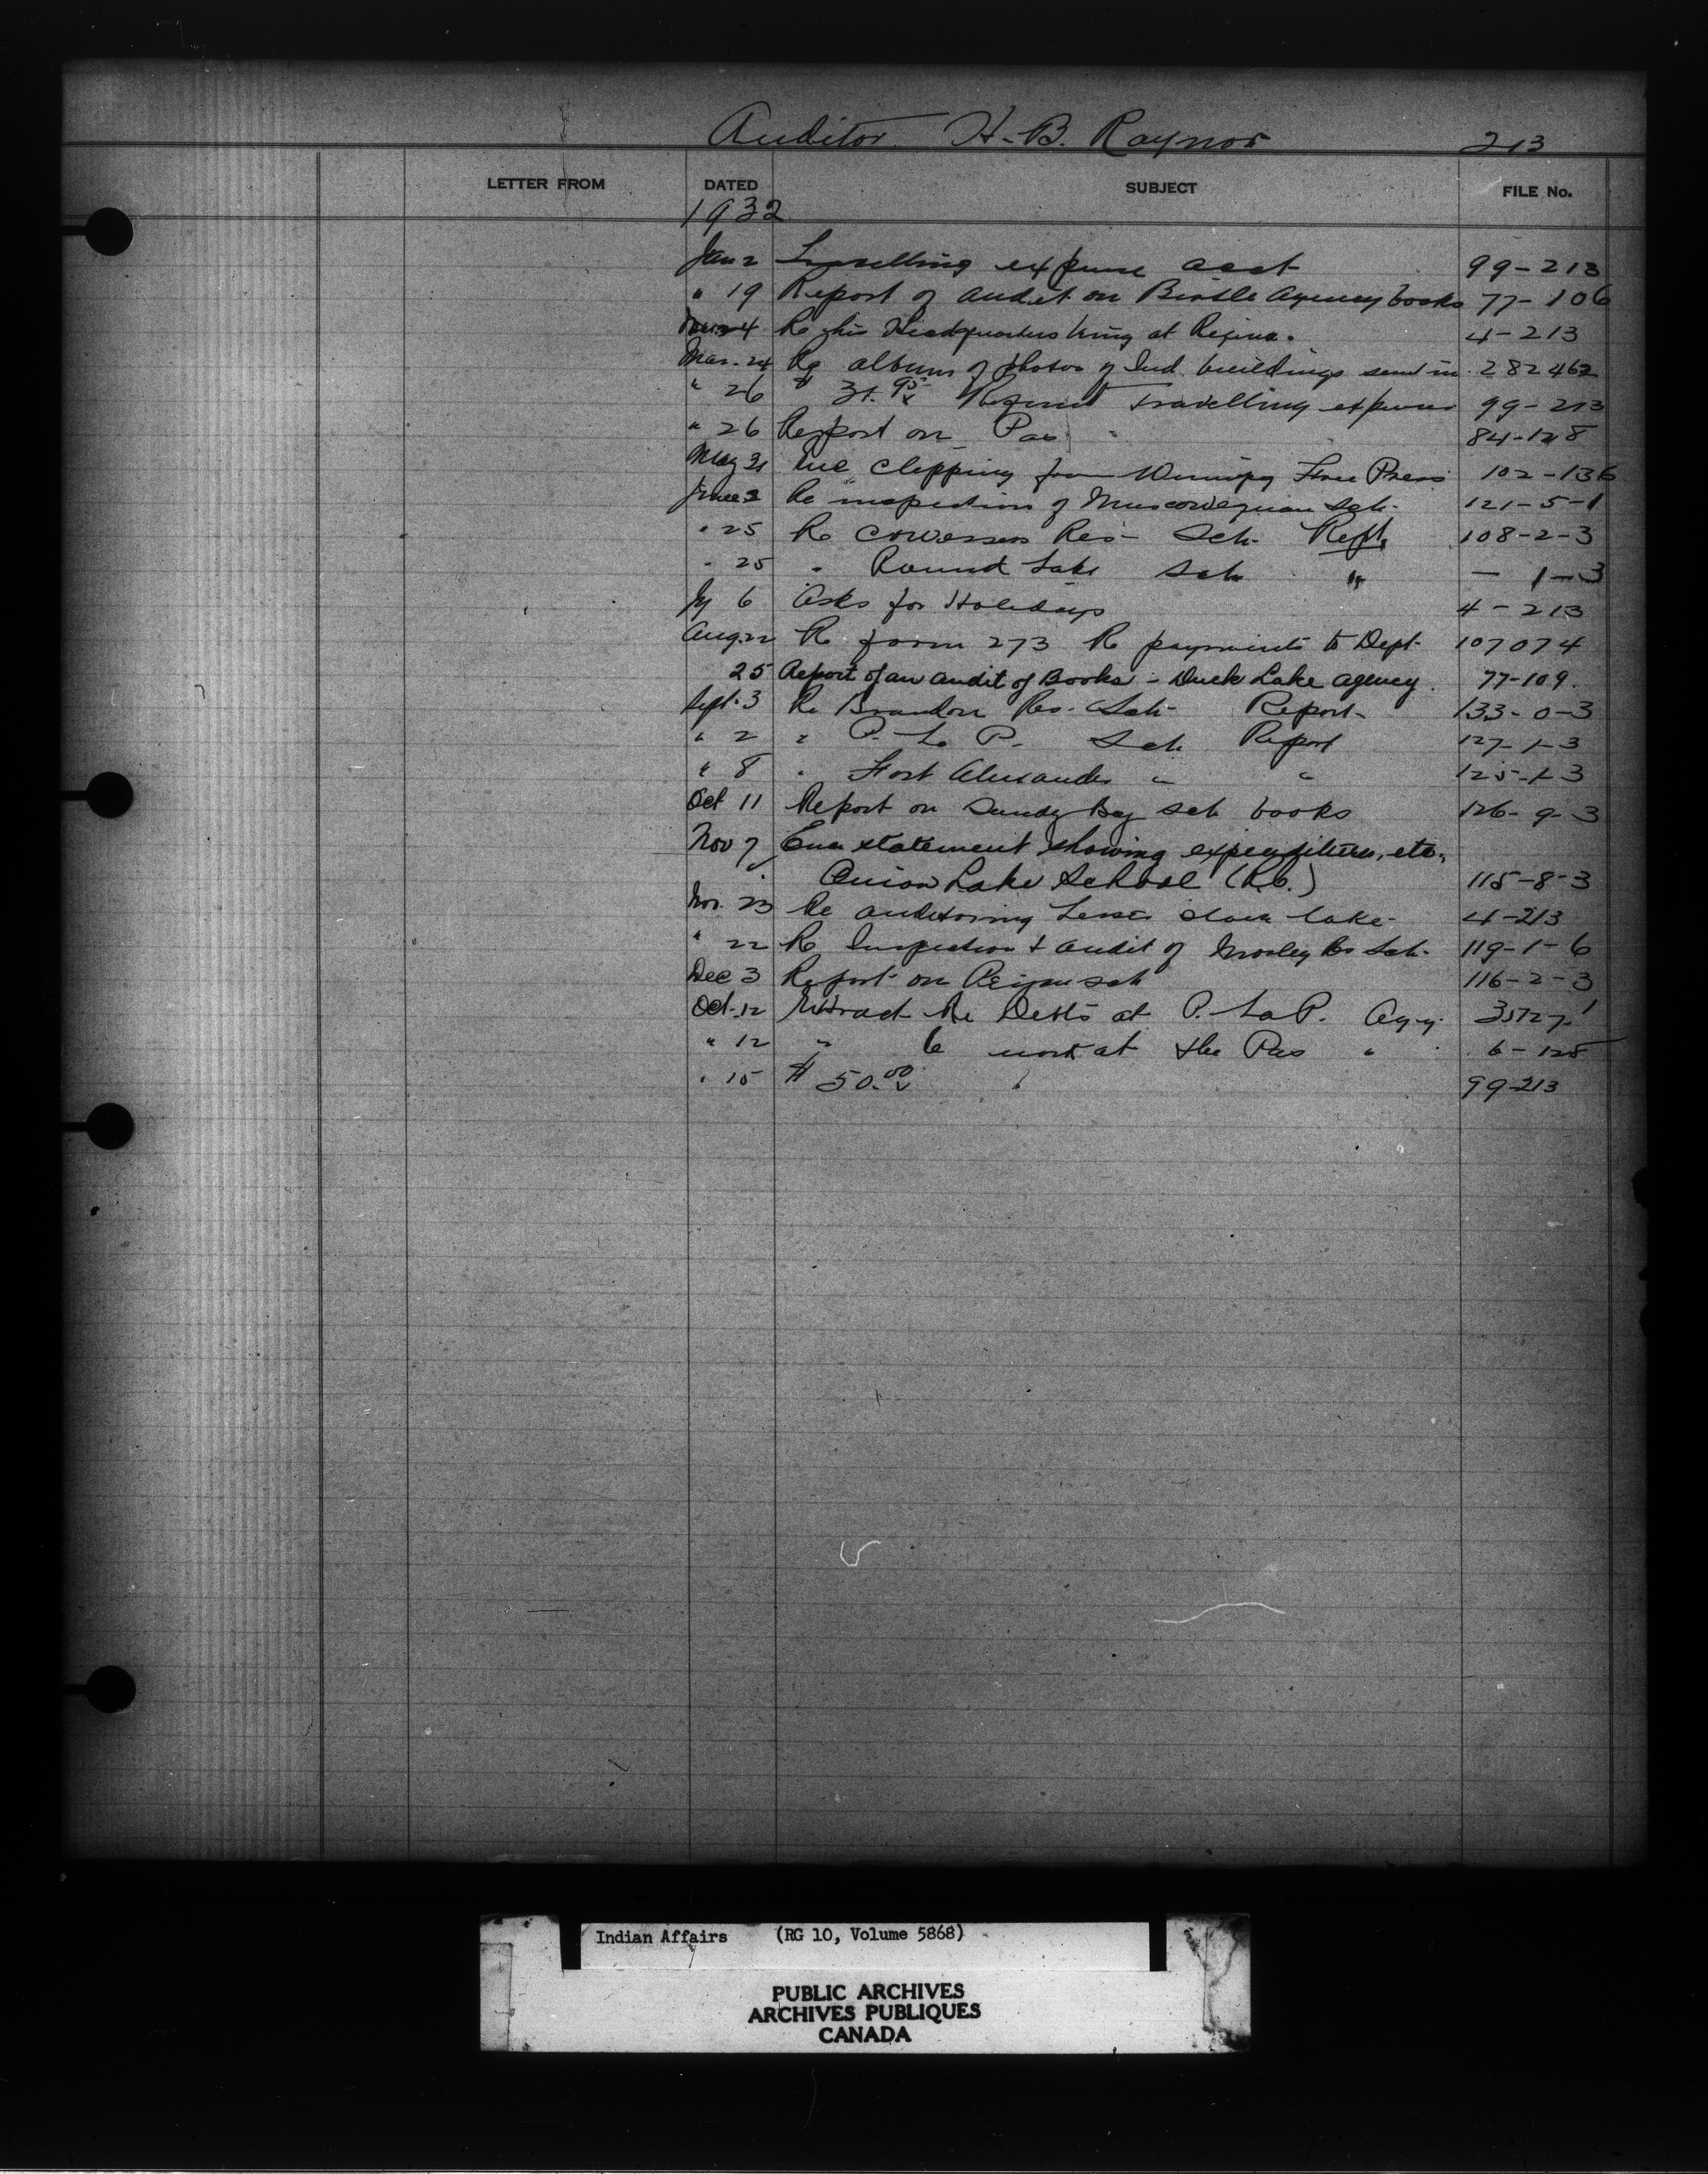 Auditor H. B. Raynor 213
LETTER FROM DATED SUBJECT FILE No.
1932
Jan 2 Travelling expense acct 99-213
" 19 Report of audit on Birtle Agency books 77-106
24 Re his Headquarters being at Regina. 4-213
Mar. 24 Re album of photos of Ind. buildings send in 282462
" 26 $ 31.95 Refund Travelling expenses 99-213
" 26 Report on Pas " 84-128
May 31 Inc clipping from Winnipeg Free Press 102-136
June 2 Re inspection of Muscowequan Sch. 121-5-1
" 25 Re Cowesses Res- Sch. Rept. 108-2-3
" 25 " Round Lake Sch " — 1-3
Jy 6 Asks for Holidays 4-213
Aug. 22 Re form 273 Re payments to Dept. 107074
25 Report of an audit of Books - Duck Lake agency. 77-109.
Sept. 3 Re Brandon Res. Sch- Report- 133-0-3
" 2 " P. La P. Sch Report 127-1-3
" 8 " Fort Alexander " " 125-1-3
Oct 11 Report on Sandy Bay sch books 126-9-3
Nov 7 Enc statement showing expenditure, etc.,
Onion Lake School (R.C.) 115-8-3
Nov. 23 Re auditoring Lesser slave lake- 4-213
" 22 Re Inspection & audit of Morley Res Sch. 119-1-6
Dec 3 Report on Peigan sch 116-2-3
Oct. 12 Extract Re Debts at P. La P. Agy. 35727-1
" 12 " Re work at the Pas " 6-128
" 15 $ 50.00 " 99-213
Indian Affairs (RG 10, Volume 5868)
PUBLIC ARCHIVES
ARCHIVES PUBLIQUES
CANADA